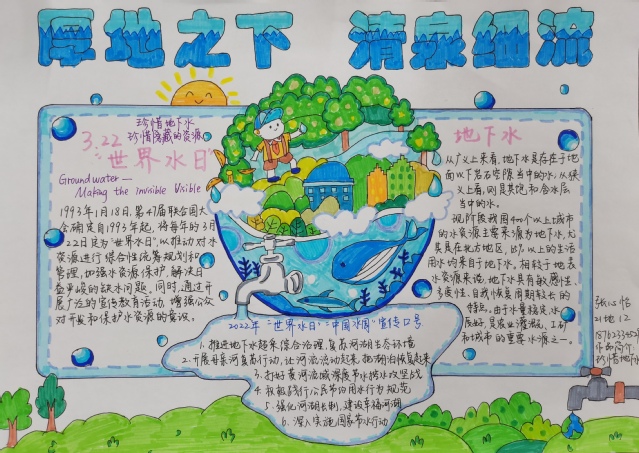 厚地之下 清泉细流
珍惜地下水
珍惜隐藏的资源
3.22
"世界水日"
Groundwater—
Making the Invisible Visible
1993年1月18日,第47届联合国大
会确定自1993年起,将每年的3月
22日定为"世界水日",以推动对水
资源进行综合性统筹规划和
管理,加强水资源保护,解决日
益严峻的缺水问题。同时,通过开
展广泛的宣传教育活动,增强公众
对开发和保护水资源的意识。
地下水
从广义上来看,地下水是存在于地
面以下岩石空隙当中的水;从狭
义上看,则是其饱和含水层
当中的水。
现阶段我国400个以上城市
的水资源主要来源为地下水,尤
其是在北方地区,65%以上的生活
用水均来自地下水。相较于地表
水资源来说,地下水具有敏感性、
多度性、自我恢复周期较长的
特点。由于水量稳定,水
质好,是农业灌溉、工矿
和城市的重要水源之一。
2022年"世界水日""中国水周"宣传口号
1.推进地下水超采综合治理,复苏河湖生态环境
2.开展母亲河复苏行动,让河流流动起来,把湖泊恢复起来
3.打好黄河流域深度节水控水攻坚战
4.积极践行公民节约用水行为规范
5.强化河湖长制,建设幸福河湖
6.深入实施国家节水行动